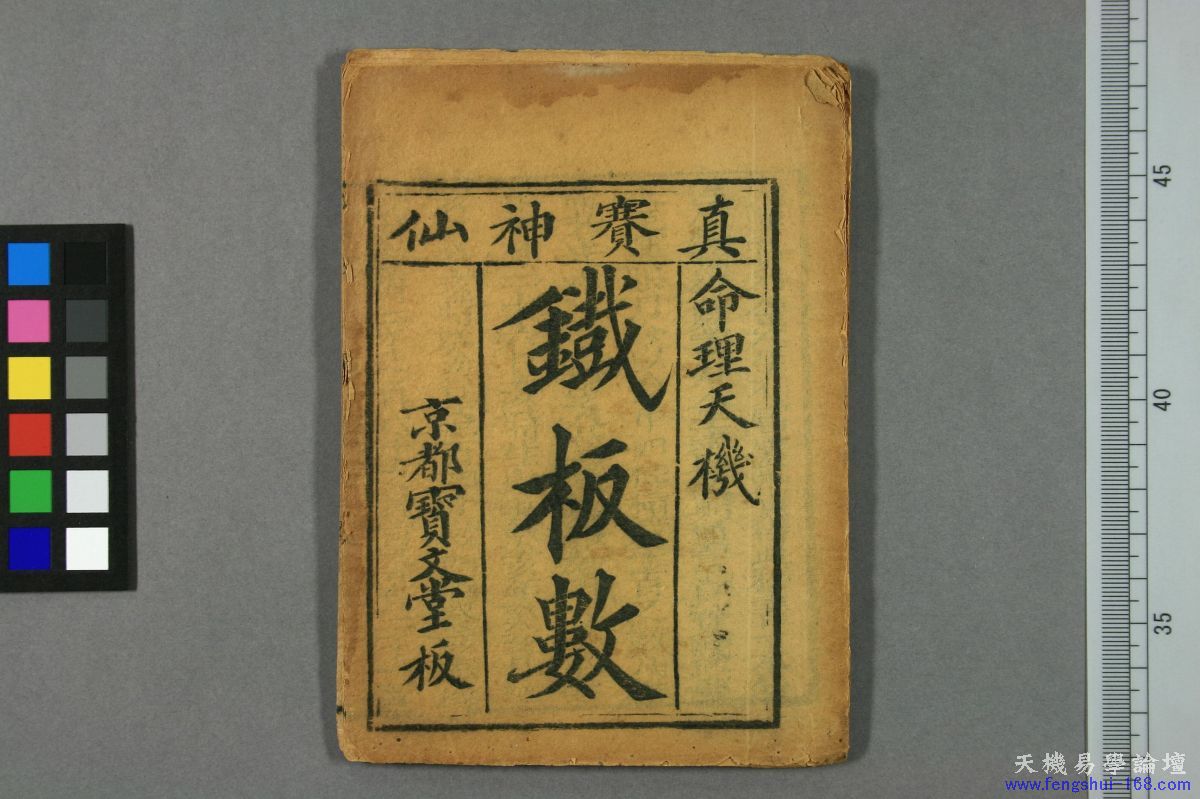 真賽神仙
命理天機
鐵板數
京都寶文堂板
45
40
35
天機易學論壇
www.fengshui-168.com